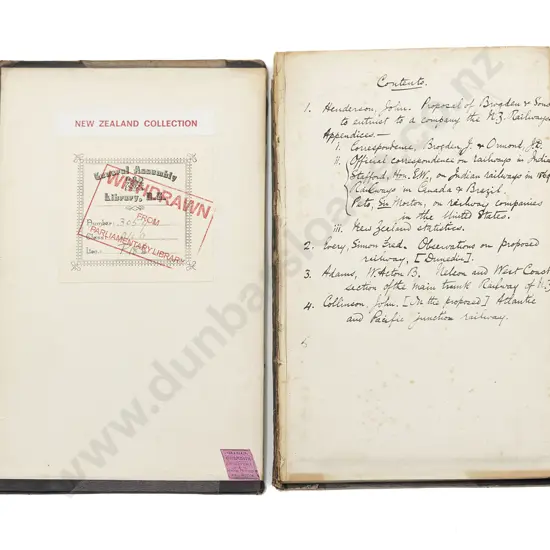 NEW ZEALAND COLLECTION
General Assembly
Library, N.Z.
WITHDRAWN
FROM
PARLIAMENTARY LIBRARY
Number:
Contents.
1. Henderson, John. Proposal of Brogden & Sons
to entrust to a company the N.Z. Railways
Appendices.—
I. Correspondence, Brogden, J. & Ormond, J.
II. Official correspondence on railways in India
Stafford, Hon. E.W., on Indian railways in 1869
Railways in Canada & Brazil.
Peto, Sir Morton, on railway companies
in the United States.
III. New Zealand statistics.
2. Every, Simon Fred. Observations on proposed
railway. [Dunedin].
3. Adams, W. Acton B. Nelson and West Coast
section of the main trunk Railway of N.Z.
4. Collinson, John. [On the proposed] Atlantic
and Pacific junction railway.
www.dunbarsloane.co.nz